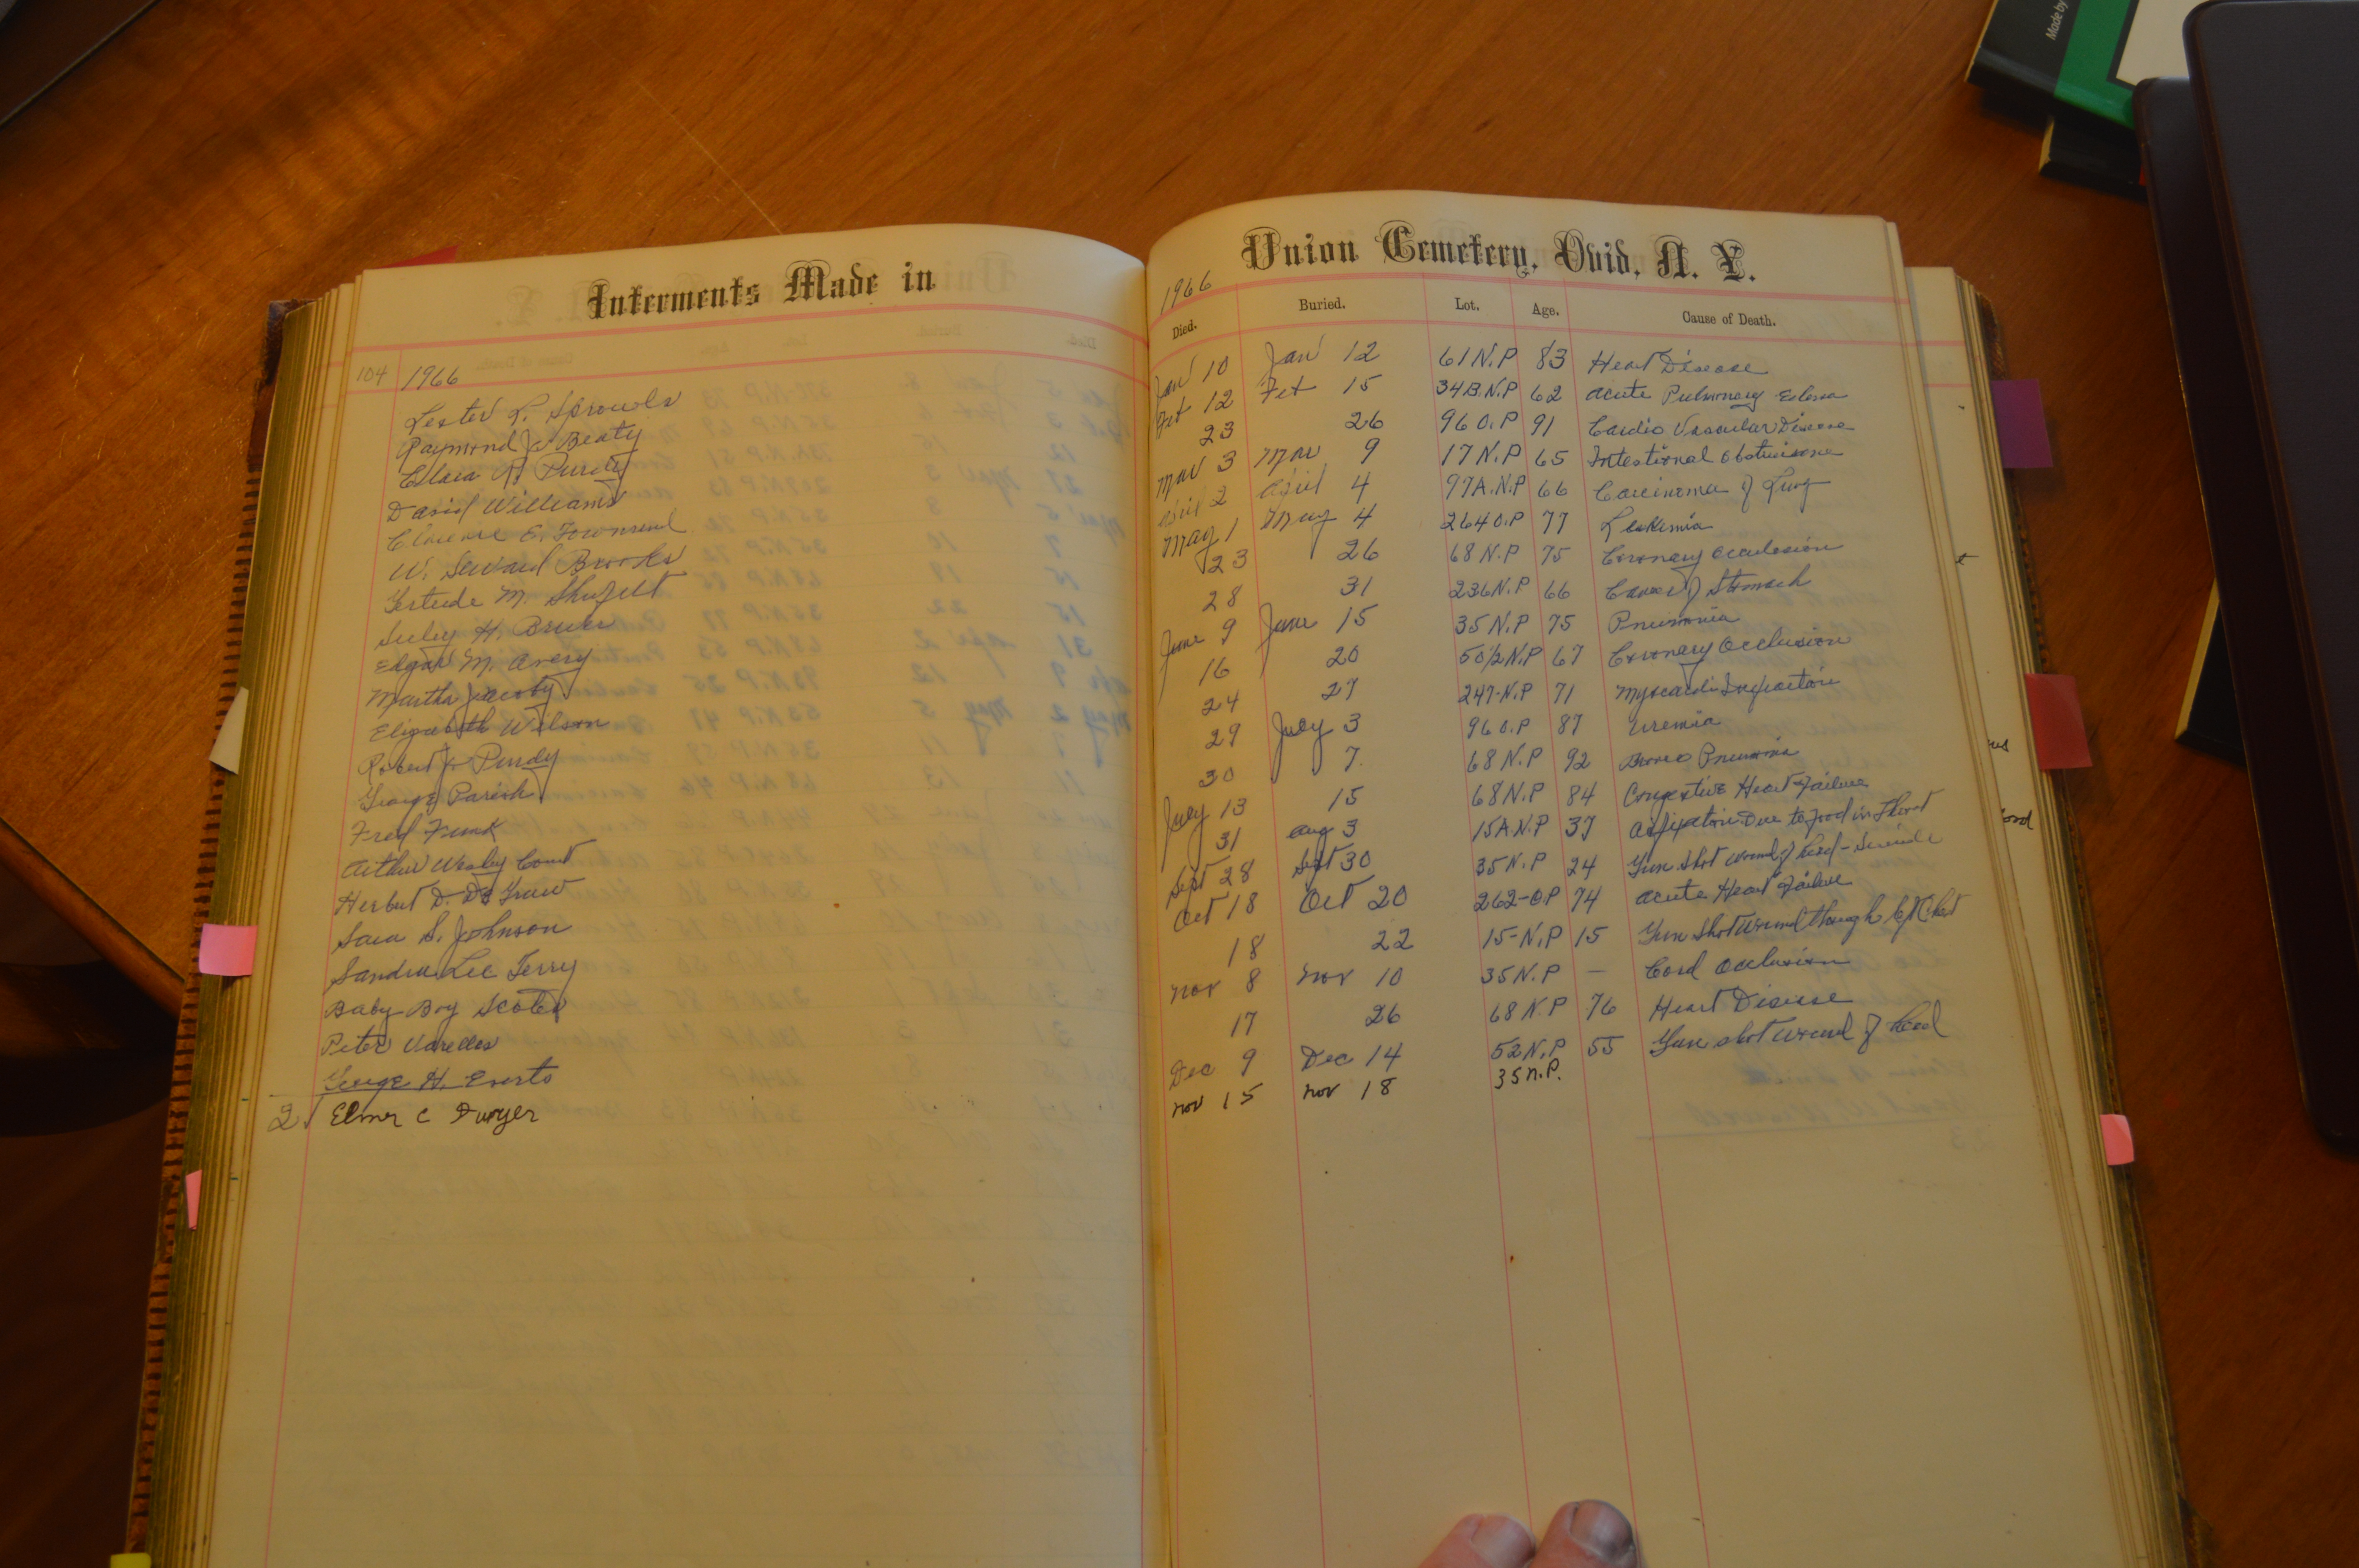 Made by
Interments Made in
104 1966
Lester L. Sprowls
Raymond J. Beaty
Clara A. Purdy
David Williams
Clarence E. Townsend
W. Seward Brooks
Gertrude M. Shufelt
Seeley H. Brewer
Edgar M. Avery
Martha Jacoby
Elizabeth Wilson
Robert J. Purdy
George Parish
Fred Funk
Arthur Wesley Count
Herbert D. De Graw
Sara S. Johnson
Sandra Lee Terry
Baby Boy
Peter Varelles
George H. Everts
Elmer C Dwyer
Union Cemetery, Ovid, N. Y.
1966
Died. Buried. Lot. Age. Cause of Death.
Jan 10 Jan 12 61 N.P 83 Heart Disease
Feb 12 Feb 15 34B.N.P 62 Acute Pulmonary Edema
23 26 96 O.P 91 Cardio Vascular Disease
Mar 3 Mar 9 17 N.P 65 Intestional
April 2 April 4 97A.N.P 66 Carcinoma of Lung
May 1 May 4 264 O.P 77 Leukemia
23 26 68 N.P 75 Coronary
28 31 236 N.P 66 Cancer of Stomach
June 9 June 15 35 N.P 75 Pneumonia
16 20 50½ N.P 67 Coronary Occlusion
24 27 247-N.P 71
29 July 3 96 O.P 87 Uremia
30 7 68 N.P 92
July 13 15 68 N.P 84 Congestive Heart Failure
31 Aug 3 15A.N.P 37 Due to food in Throat
Sept 28 Sept 30 35 N.P 24 Gun Shot wound of head - Suicide
Oct 18 Oct 20 262-O.P 74 Acute Heart Failure
18 22 15-N.P 15 Gun Shot wound though left Chest
Nov 8 Nov 10 35 N.P — Cord Occlusion
17 26 68 N.P 76 Heart Disease
Dec 9 Dec 14 52 N.P 55 Gun shot wound of head
Nov 15 Nov 18 35 N.P.